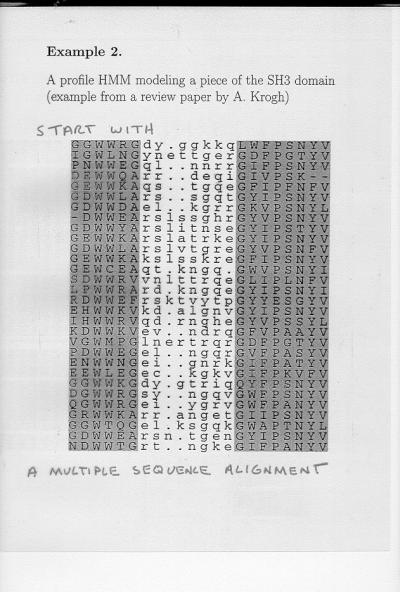 Example 2.
A profile HMM modeling a piece of the SH3 domain
(example from a review paper by A. Krogh)
START WITH
GGWWRGdy.ggkkqLWFPSNYV
IGWLNGynettgerGDFPGTYV
PNWWEGql..nnrrGIFPSNYV
DEWWQArr..deqiGIVPSK--
GEWWKAqs..tgqeGFIPFNFV
GDWWLArs..sgqtGYIPSNYV
GDWWDAel..kgrrGKVPSNYL
-DWWEArsissghrGYVPSNYV
GDWWYArslitnseGYIPSTYV
GEWWKArslatrkeGYIPSNYV
GDWWLArslvtgreGYVPSNFV
GEWWKAkslsskreGFIPSNYV
GEWCEAqt.kngq.GWVPSNYI
SDWWRVvnlttrqeGLIPLNFV
LPWWRArd.kngqeGYIPSNYI
RDWWEFrsktvytpGYYESGYV
EHWWKVkd.algnvGYIPSNYV
IHWWRVqd.rnqheGYVPSSYL
KDWWKVev..ndrqGFVPAAYV
VGWMPGlnertrqrGDFPGTYV
PDWWEGel..ngqrGVFPASYV
ENWWNGeic..gnrkGIFPATYV
EEWLEGe...kgkvGIFPKVFV
GGWWKGdy.gtriqQYFPSNYV
DGWWRGsy..ngqvGWFPSNYV
QGWWRGei..ygrvGWFPANYV
GRWWKArr..angetGIIPSNYV
GGWTQGel.ksgqkGWAPTNYL
GDWWEArsn.tgenGYIPSNYV
NDWWTGrt..ngkeGIFPANYV
A MULTIPLE SEQUENCE ALIGNMENT